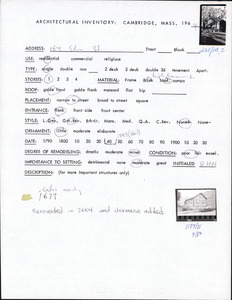 ARCHITECTURAL INVENTORY: CAMBRIDGE, MASS, 196
ADDRESS: 164 St. Tract Block
USE: residential commercial religious
TYPE: single double row 2 deck 3 deck double 3d tenement Apart.
STORIES: 1 2 3 4 MATERIAL: Frame Brick
ROOF: gable front gable flank mansard flat hip
PLACEMENT: narrow to street broad to street set in square
ENTRANCE: flank front side front center
STYLE: L.Geo. Gk.Rev. Brkt. Mans. Med. Q.A. C.Rev. Neo-G. Modern
ORNAMENT: little moderate elaborate
DATE: 1790 1800 10 20 30 40 50 60 70 80 90 1900 10 20 30
DEGREE OF REMODELING: drastic moderate minor CONDITION: poor fair excel.
IMPORTANCE TO SETTING: detrimental none moderate great INITIALED
DESCRIPTION: (for more important structures only)
1873
Renovated in 2004 and dormers added